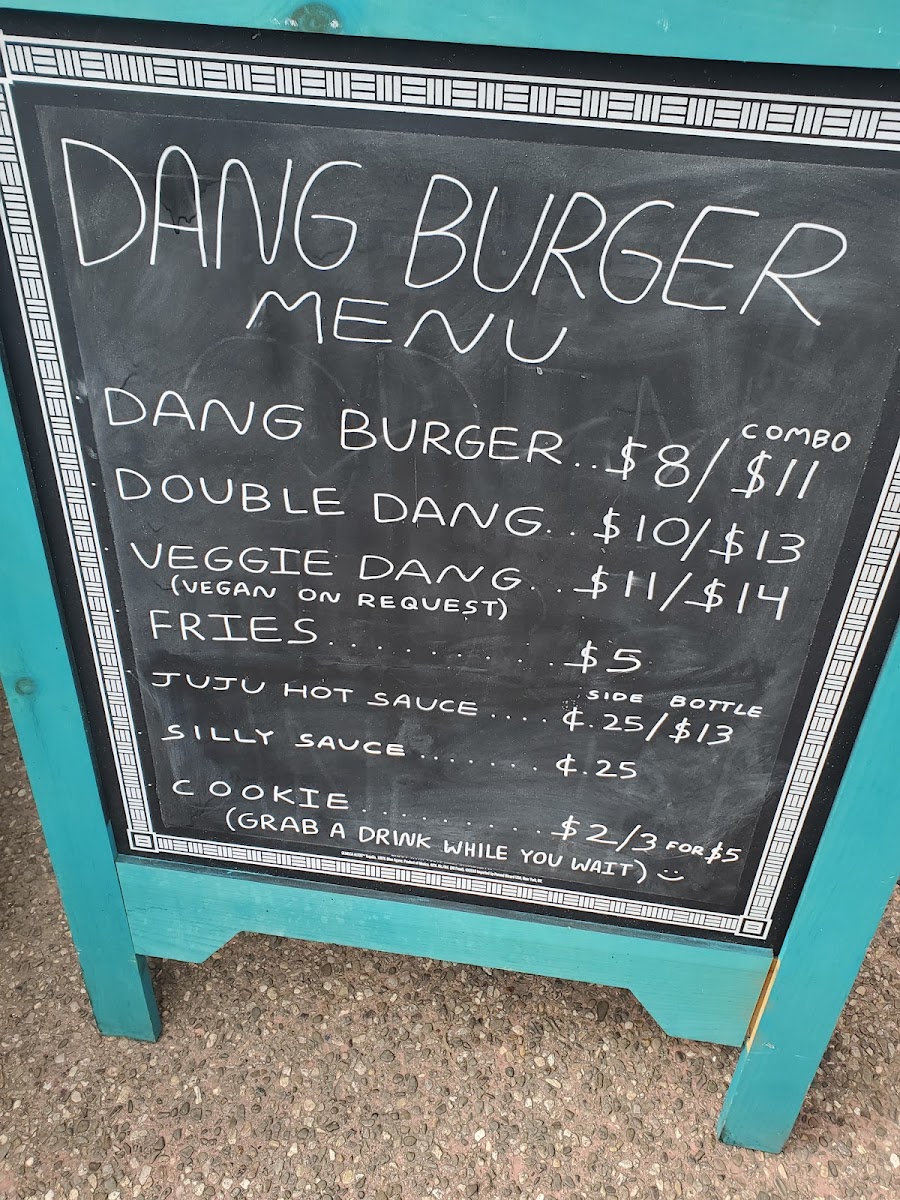 DANG BURGER
MENU
COMBO
DANG BURGER..$8/$11
DOUBLE DANG...$10/$13
VEGGIE DANG...$11/$14
(VEGAN ON REQUEST)
FRIES...........$5
SIDE BOTTLE
JUJU HOT SAUCE....¢.25/$13
SILLY SAUCE........¢.25
COOKIE..........$2/3 FOR $5
(GRAB A DRINK WHILE YOU WAIT) :)